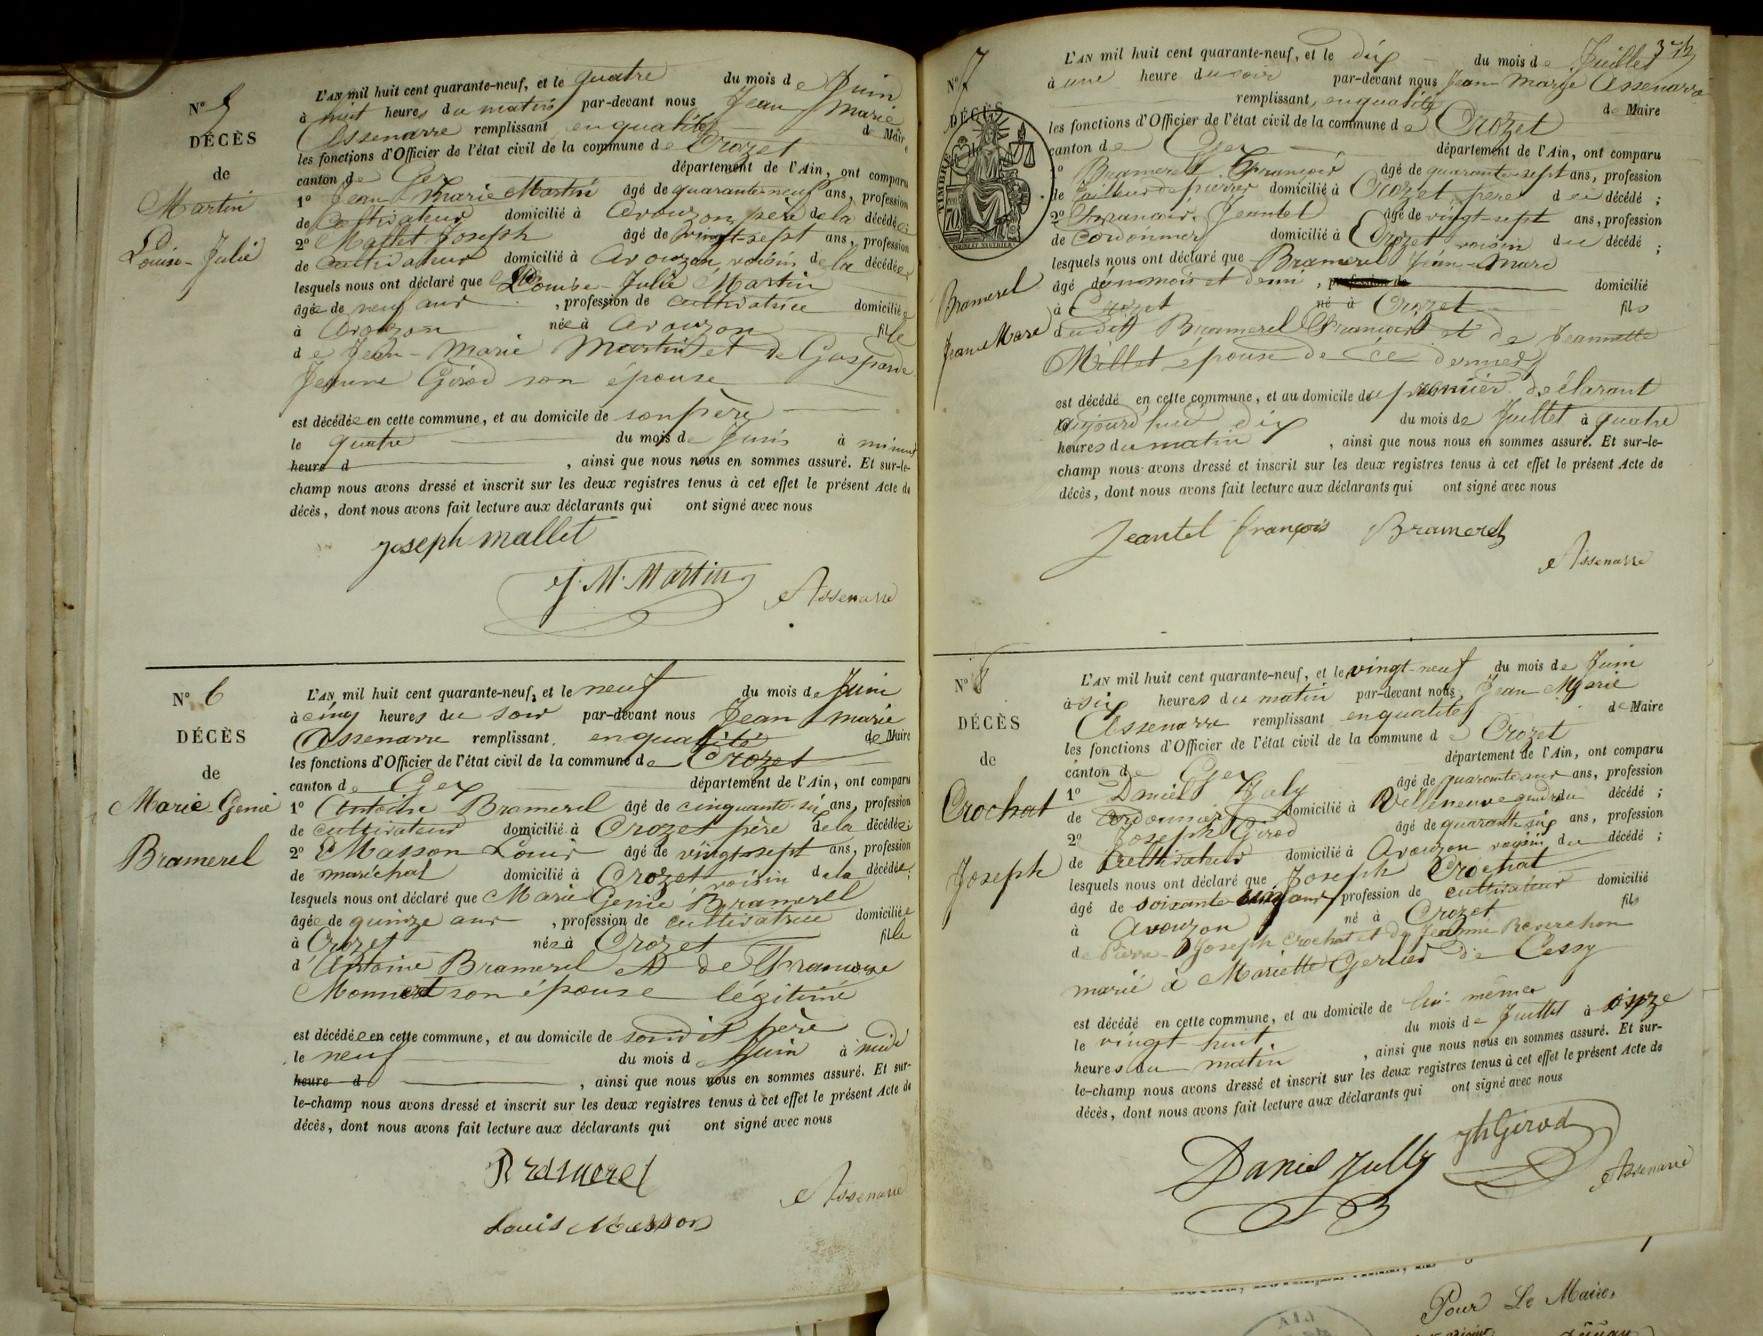 N° 5
DÉCÈS
de
Martin
Louise-Julie
L'AN mil huit cent quarante-neuf, et le quatre du mois de Juin
à huit heures du matin par-devant nous Jean Marie
Assenarre remplissant en qualité de Maire
les fonctions d'Officier de l'état civil de la commune de Crozet
canton de Gex département de l'Ain, ont comparu
1° Jean Marie Martin âgé de quarante-neuf ans, profession
de Cultivateur domicilié à Avouzon père de la décédée
2° Mallet Joseph âgé de vingt-sept ans, profession
de Cultivateur domicilié à Avouzon voisin de la décédée
lesquels nous ont déclaré que Louise-Julie Martin
âgée de neuf ans, profession de cultivatrice domiciliée
à Avouzon née à Avouzon fille
de Jean-Marie Martin et de Gasparde
Jeanne Girod son épouse
est décédée en cette commune, et au domicile de son père
le quatre du mois de Juin à minuit
heure d , ainsi que nous nous en sommes assuré. Et sur-le-
champ nous avons dressé et inscrit sur les deux registres tenus à cet effet le présent Acte de
décès, dont nous avons fait lecture aux déclarants qui ont signé avec nous
Joseph mallet
J. M. Martin
Assenarre
N° 6
DÉCÈS
de
Marie Génie
Bramerel
L'AN mil huit cent quarante-neuf, et le neuf du mois de Juin
à cinq heures du soir par-devant nous Jean Marie
Assenarre remplissant en qualité de Maire
les fonctions d'Officier de l'état civil de la commune de Crozet
canton de Gex département de l'Ain, ont comparu
1° Antoine Bramerel âgé de cinquante-six ans, profession
de cultivateur domicilié à Crozet père de la décédée
2° Masson Louis âgé de vingt-sept ans, profession
de maréchal domicilié à Crozet voisin de la décédée;
lesquels nous ont déclaré que Marie Génie Bramerel
âgée de quinze ans, profession de cultivatrice domiciliée
à Crozet née à Crozet fille
d'Antoine Bramerel et de Françoise
Monnet son épouse légitime
est décédée en cette commune, et au domicile de son dit père
le neuf du mois de Juin à midi
heure d , ainsi que nous nous en sommes assuré. Et sur-
le-champ nous avons dressé et inscrit sur les deux registres tenus à cet effet le présent Acte de
décès, dont nous avons fait lecture aux déclarants qui ont signé avec nous
Bramerel
Assenarre
Louis Masson
N° 7
DÉCÈS
TIMBRE
Bramerel
Jean Marc
L'AN mil huit cent quarante-neuf, et le dix du mois de Juillet
à une heure du soir par-devant nous Jean-Marie Assenarre
remplissant, en qualité de Maire
les fonctions d'Officier de l'état civil de la commune de Crozet
canton de Gex département de l'Ain, ont comparu
1° Bramerel François âgé de quarante-sept ans, profession
de tailleur de pierres domicilié à Crozet père du décédé;
2° François Jeantet âgé de vingt-sept ans, profession
de cordonnier domicilié à Crozet voisin du décédé;
lesquels nous ont déclaré que Bramerel Jean-Marc
âgé de un mois et demi, profession de domicilié
à Crozet né à Crozet fils
dudit Bramerel François et de Jeannette
Mallet épouse de ce dernier
est décédé en cette commune, et au domicile du premier déclarant
aujourd'hui dix du mois de Juillet à quatre
heures du matin, ainsi que nous nous en sommes assuré. Et sur-le-
champ nous avons dressé et inscrit sur les deux registres tenus à cet effet le présent Acte de
décès, dont nous avons fait lecture aux déclarants qui ont signé avec nous
Jeantet françois Bramerel
Assenarre
N° 8
DÉCÈS
de
Crochat
Joseph
L'AN mil huit cent quarante-neuf, et le vingt-neuf du mois de Juin
à six heures du matin par-devant nous Jean Marie
Assenarre remplissant en qualité de Maire
les fonctions d'Officier de l'état civil de la commune de Crozet
canton de Gex département de l'Ain, ont comparu
1° Daniel âgé de quarante ans, profession
de cordonnier domicilié à Villeneuve gendre du décédé;
2° Joseph Girod âgé de quarante six ans, profession
de Cultivateur domicilié à Avouzon voisin du décédé;
lesquels nous ont déclaré que Joseph Crochat
âgé de soixante cinq ans, profession de cultivateur domicilié
à Avouzon né à Crozet fils
de Pierre-Joseph Crochat et de Jeanne Reverchon
marié à Mariette Gerlier de Cessy
est décédé en cette commune, et au domicile de lui-même
le vingt huit du mois de Juillet à onze
heures du matin, ainsi que nous nous en sommes assuré. Et sur-
le-champ nous avons dressé et inscrit sur les deux registres tenus à cet effet le présent Acte de
décès, dont nous avons fait lecture aux déclarants qui ont signé avec nous
Daniel Jully
Jh Girod
Assenarre
Pour Le Maire,